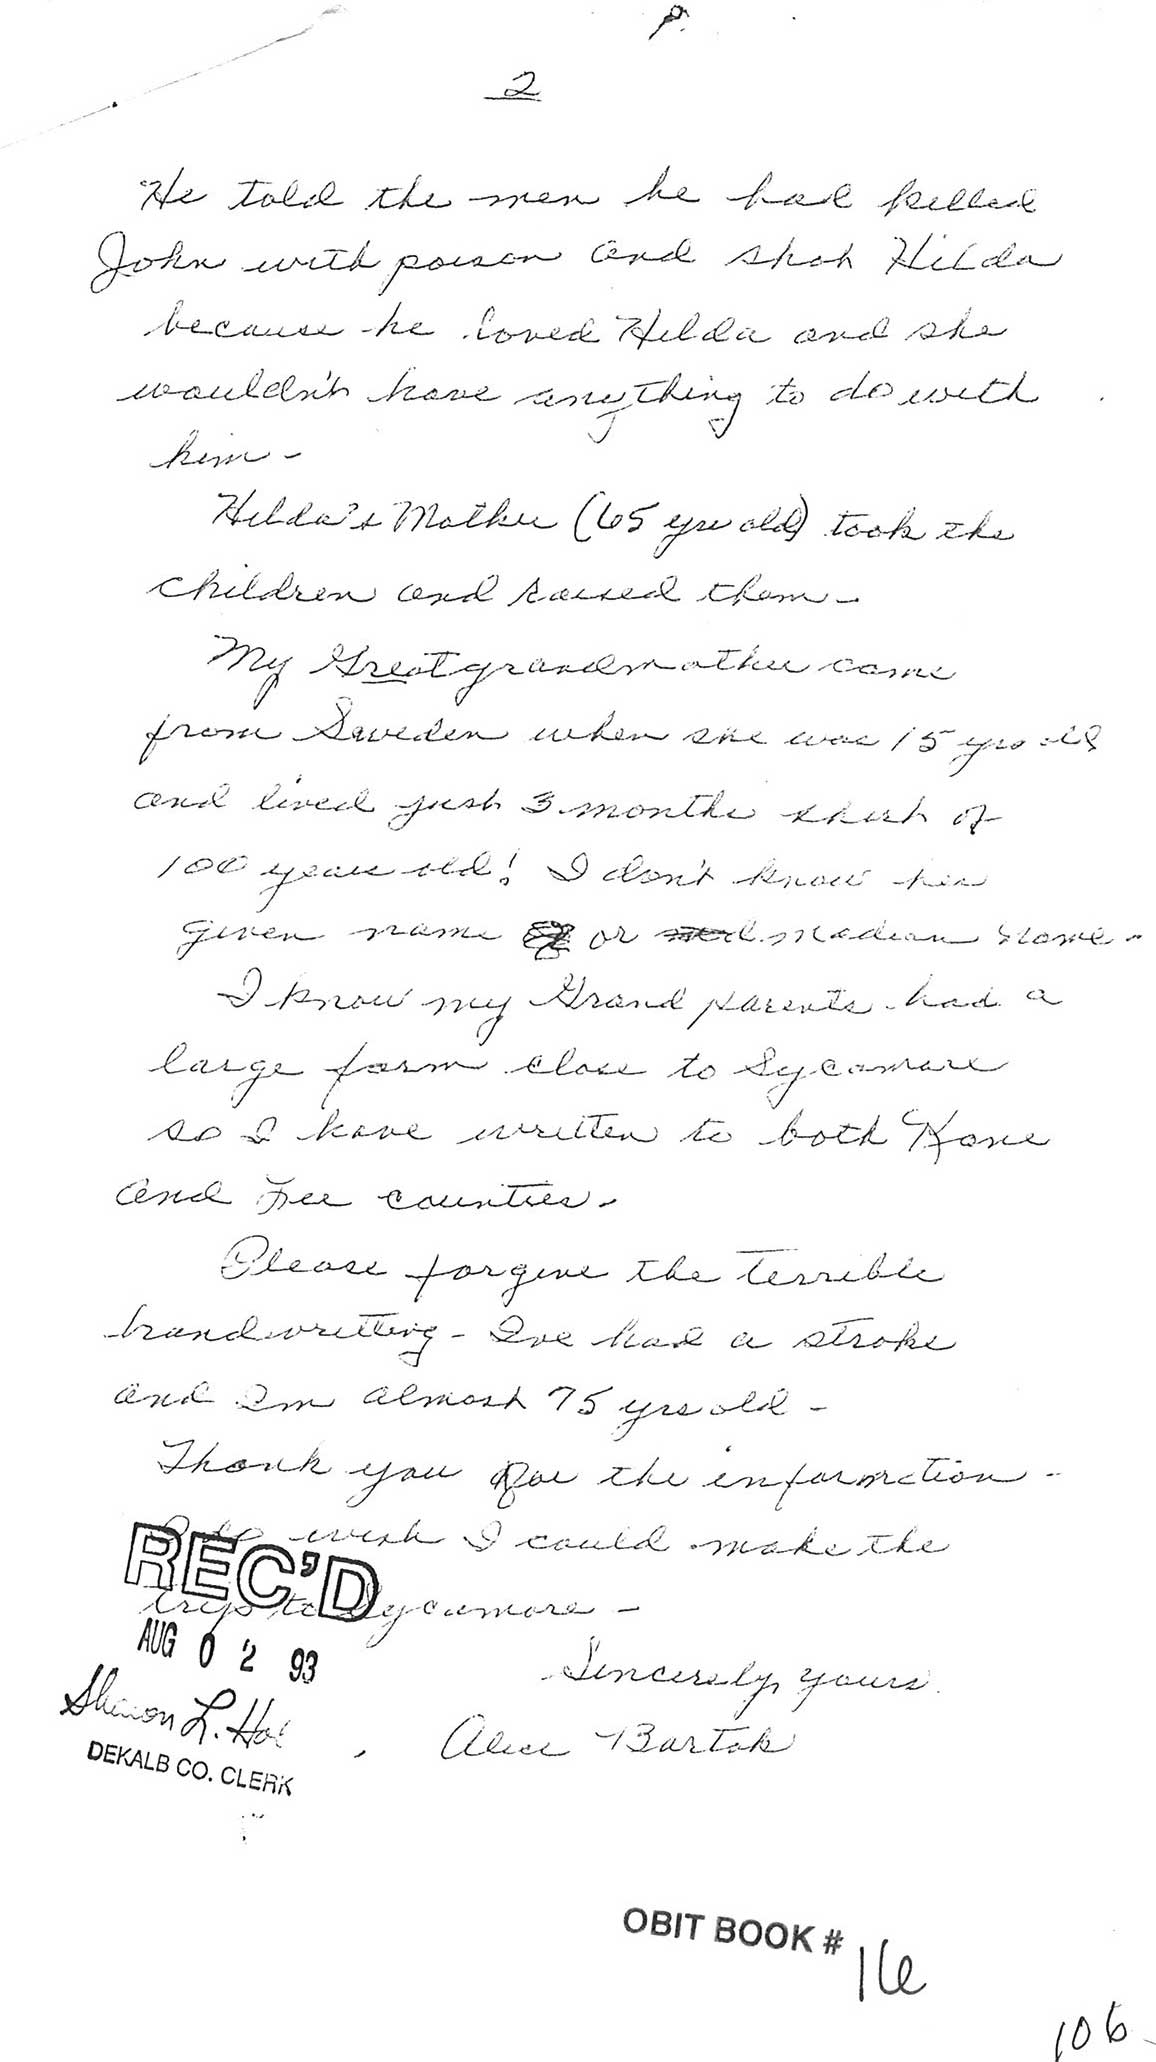 P.
2
He told the men he had killed
John with poison and shot Hilda
because he loved Hilda and she
wouldn't have anything to do with
him -
Hilda's Mother (65 yrs old) took the
children and raised them -
My Great grandmother came
from Sweden when she was 15 yrs old
and lived just 3 months short of
100 years old! I don't know her
given name or madian name -
I know my Grand parents had a
large farm close to Sycamore
so I have written to both Kane
and Lee counties.
Please forgive the terrible
handwriting - I've had a stroke
and Im almost 75 yrs old -
Thank you for the information -
I do wish I could make the
trip to Sycamore -
Sincerely yours
Alice Bartok
REC'D
AUG 02 93
Sharon L. Hol
DEKALB CO. CLERK
OBIT BOOK # 16
106